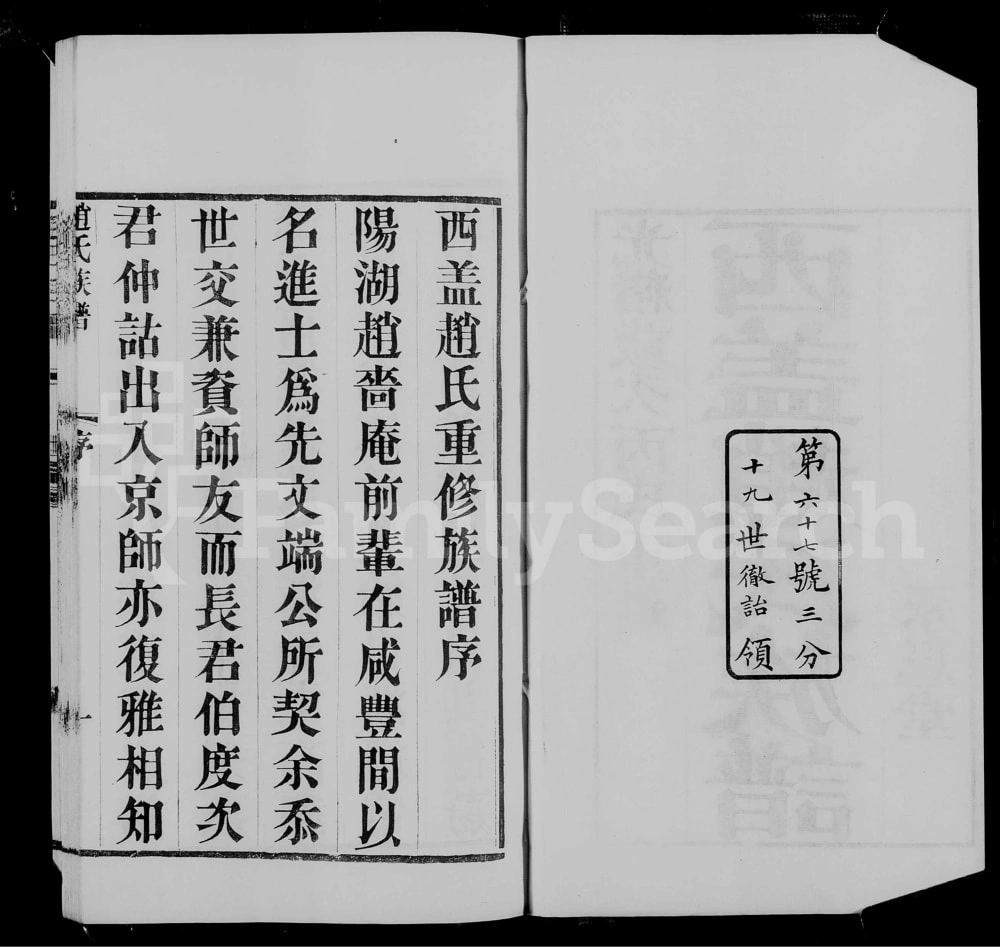 第六十七號三分
十九世徹詒領
西盖趙氏重修族譜序
陽湖趙嗇庵前輩在咸豐間以
名進士爲先文端公所契余忝
世交兼資師友而長君伯度次
君仲詁出入京師亦復雅相知
趙氏族譜
序
一
FamilySearch